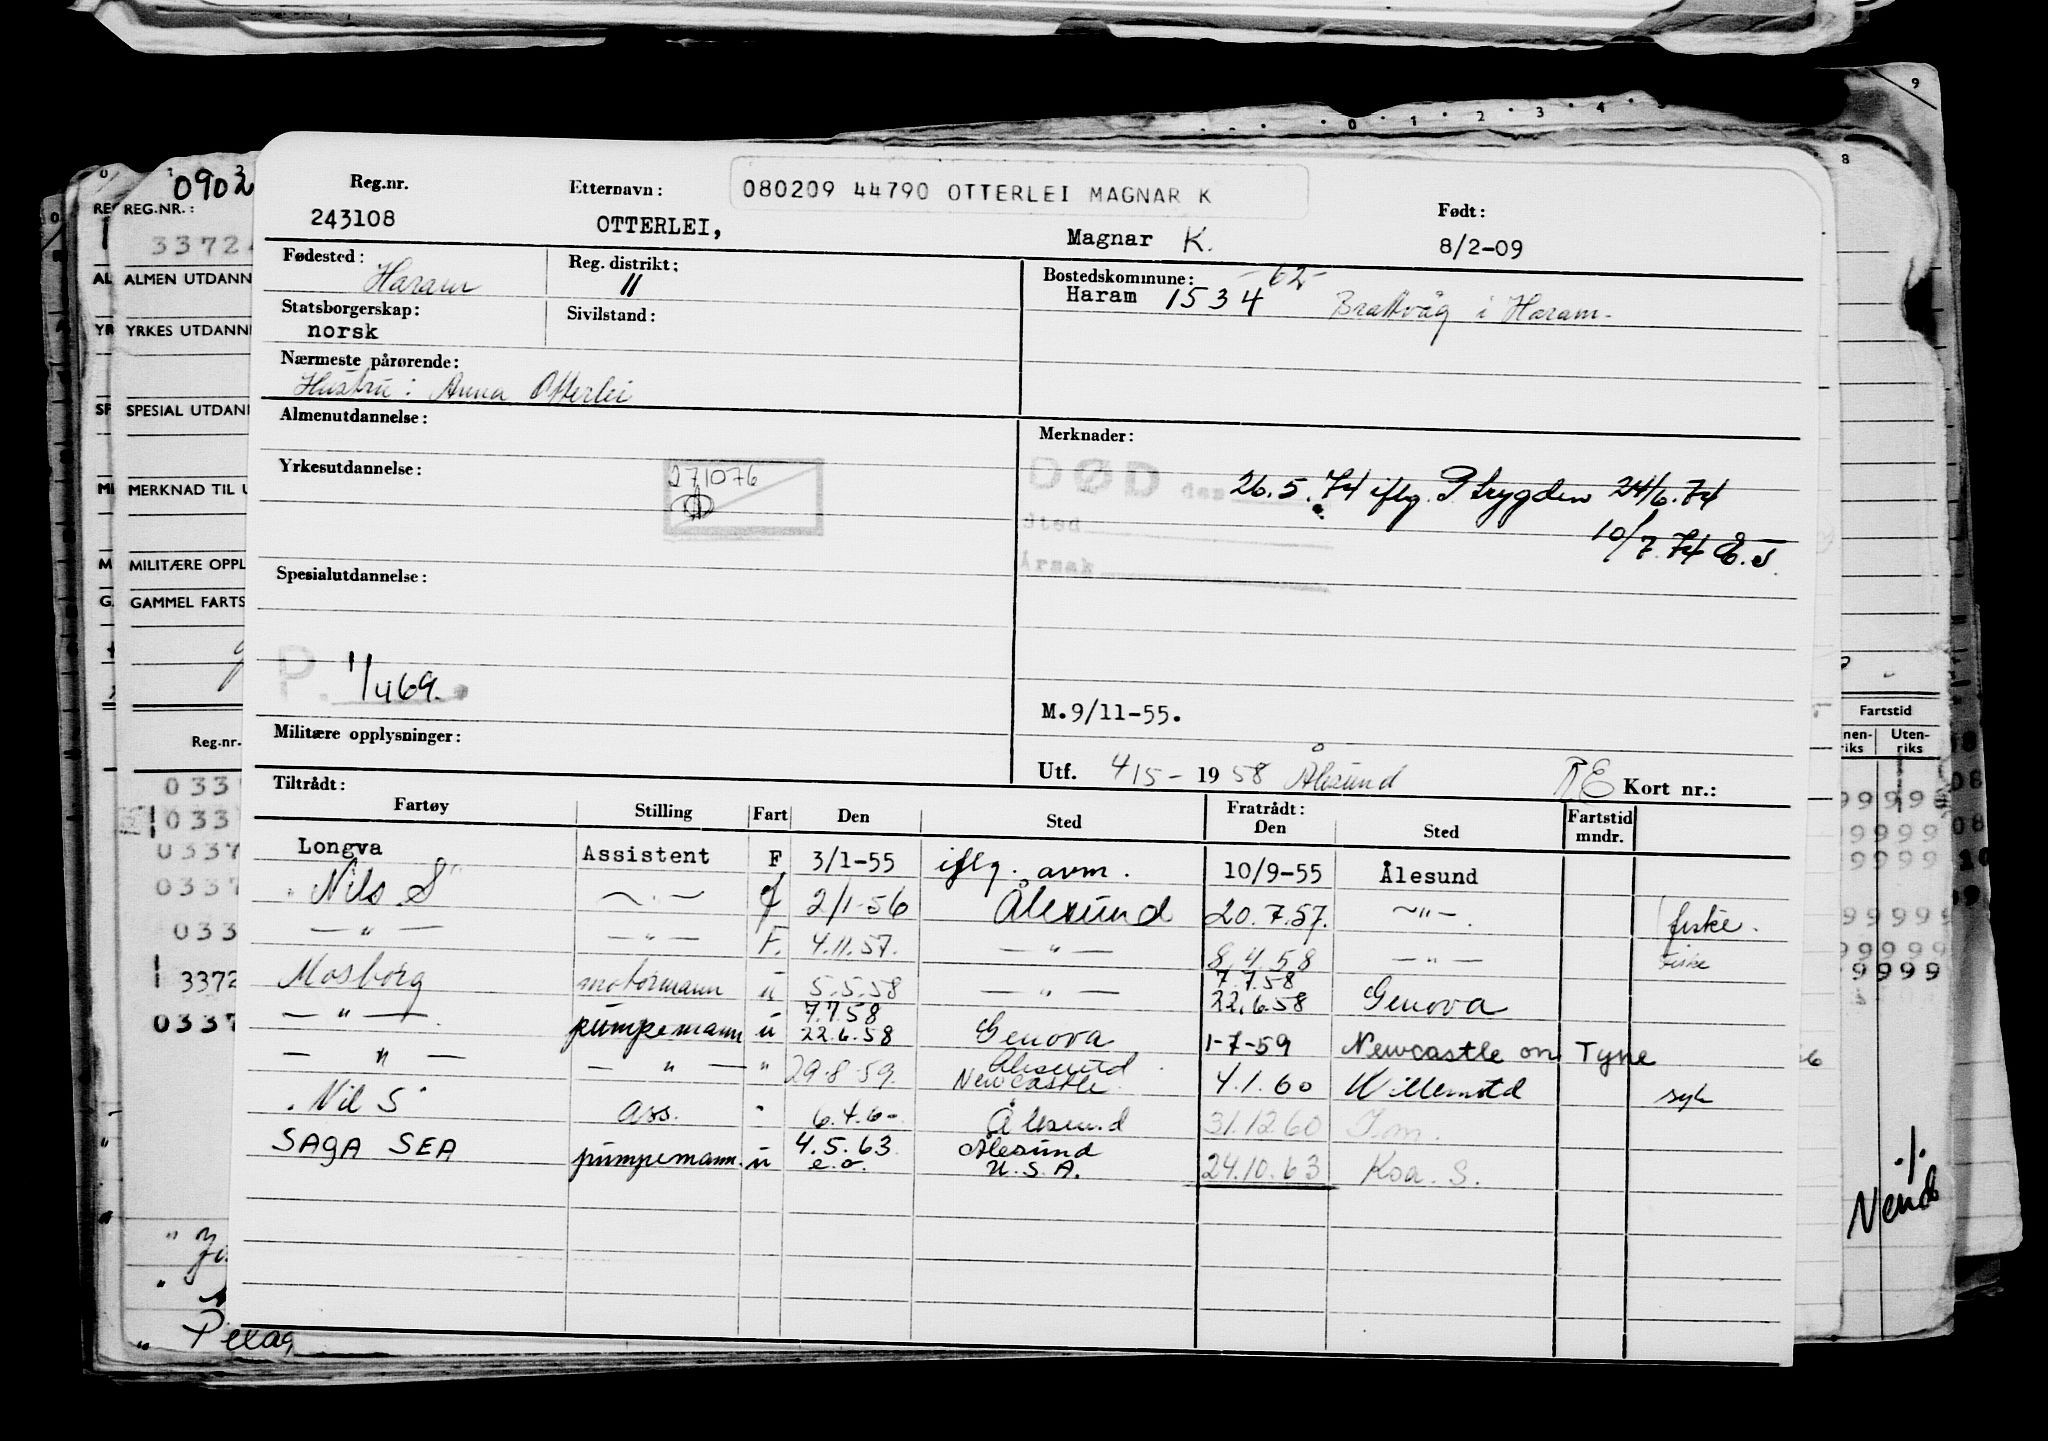 080209 44790 OTTERLEI MAGNAR K
Reg.nr. Etternavn: Født:
243108 OTTERLEI, Magnar K. 8/2-09
Fødested: Haram Reg. distrikt: " Bostedskommune: -62-
Haram 1534 Brattvåg i Haram.
Statsborgerskap: norsk Sivilstand:
Nærmeste pårørende:
Hustru: Anna Otterlei
Almenutdannelse: Merknader:
Yrkesutdannelse: 271076 DØD den 26.5.74 iflg. P trygden 24/6.74
Sted 10/7.74
Årsak
Spesialutdannelse:
P. 1/4 69.
M.9/11-55.
Militære opplysninger:
Utf. 4/5- 1958 Ålesund Kort nr.:
Tiltrådt: Fratrådt:
Fartøy Stilling Fart Den Sted Den Sted Fartstid mndr.
Longva Assistent F 3/1-55 iflg. avm. 10/9-55 Ålesund
"Nils S" — " — f 2/1-56 Ålesund 20.7.57. — " — fiske.
— " — — " — F. 4.11.57. — " — 8.4.58 — " — Fiske
Mosborg motormann u 5.5.58 — " — 7.7.58 22.6.58 Genova
— " — pumpemann u 7.7.58 22.6.58 Genova 1-7-59 Newcastle on Tyne
— " — — " — " 29.8.59. Ålesund Newcastle 4.1.60 Willemstd syk
"Nil S" Ass. " 6.4.60 Ålesund 31.12.60
SAGA SEA pumpemann. u 4.5.63 e.o. Ålesund U.S.A. 24.10.63 Koa. S.
0902
REG.NR.:
3372
ALMEN UTDANN
YRKES UTDANN
SPESIAL UTDANN
MERKNAD TIL U
MILITÆRE OPPL
GAMMEL FARTS
Reg.nr.
033
033
0337
0337
033
3372
0337
Fartstid
Uten-
riks
9999